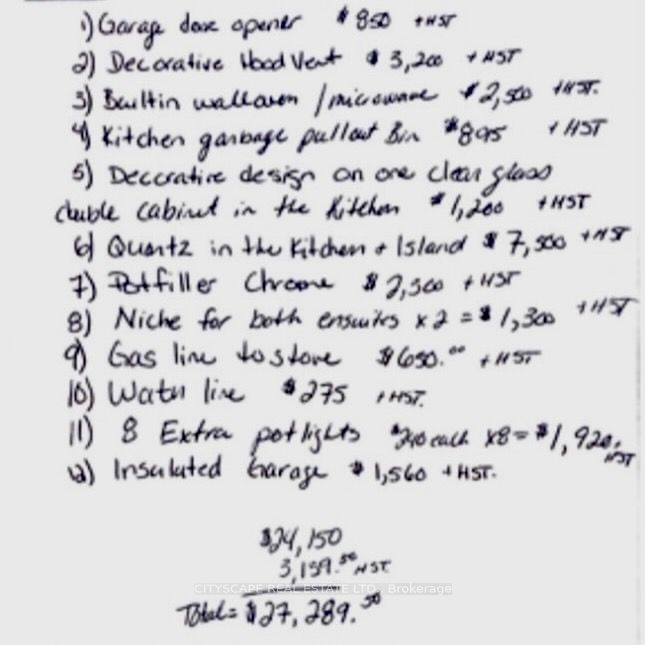 1) Garage door opener $850 +HST
2) Decorative Hood Vent $3,200 +HST
3) Builtin walloven / microwave $2,500 +HST.
4) Kitchen garbage pullout Bin $895 +HST
5) Deccrative design on one clear glass
duble cabinet in the Kitchen $1,200 +HST
6) Quartz in the Kitchen + Island $7,500 +HST
7) Potfiller Chrome $2,300 +HST
8) Niche for both ensuites x2 = $1,300 +HST
9) Gas line to stove $650.00 +HST
10) Water line $275 +HST.
11) 8 Extra potlights $240 each x8 = $1,920. HST
12) Insulated Garage $1,560 +HST.
$24,150
3,139.50 HST
CITYSCAPE REAL ESTATE LTD., Brokerage
Total = $27,289.50